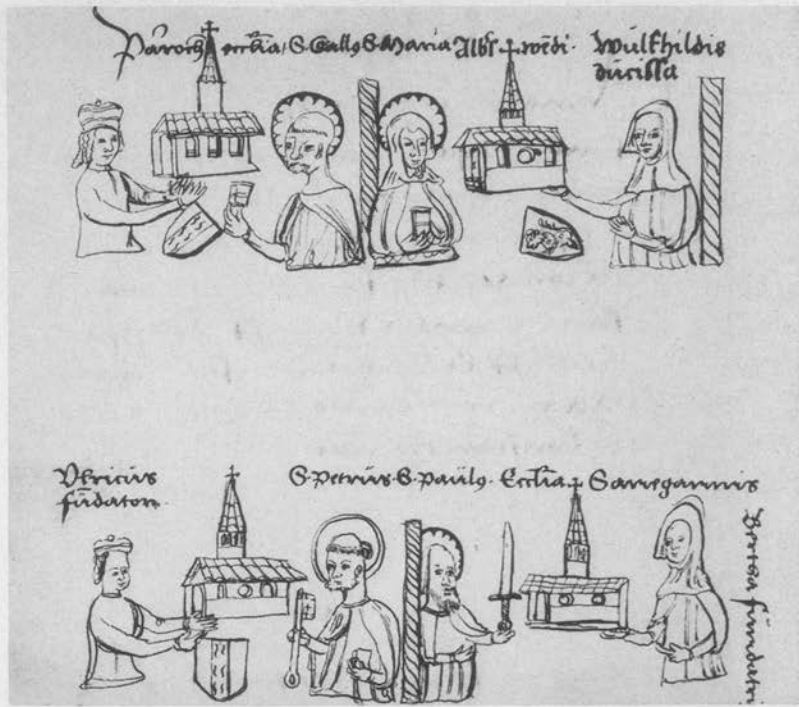 Paroch ecclia S. Gally S. Maria Albs wedi. Wulfhildis
ducissa
Vlricus
fundator
S. Petrus. S. Pauly. Ecclia Savegannis
Bertha fundatri